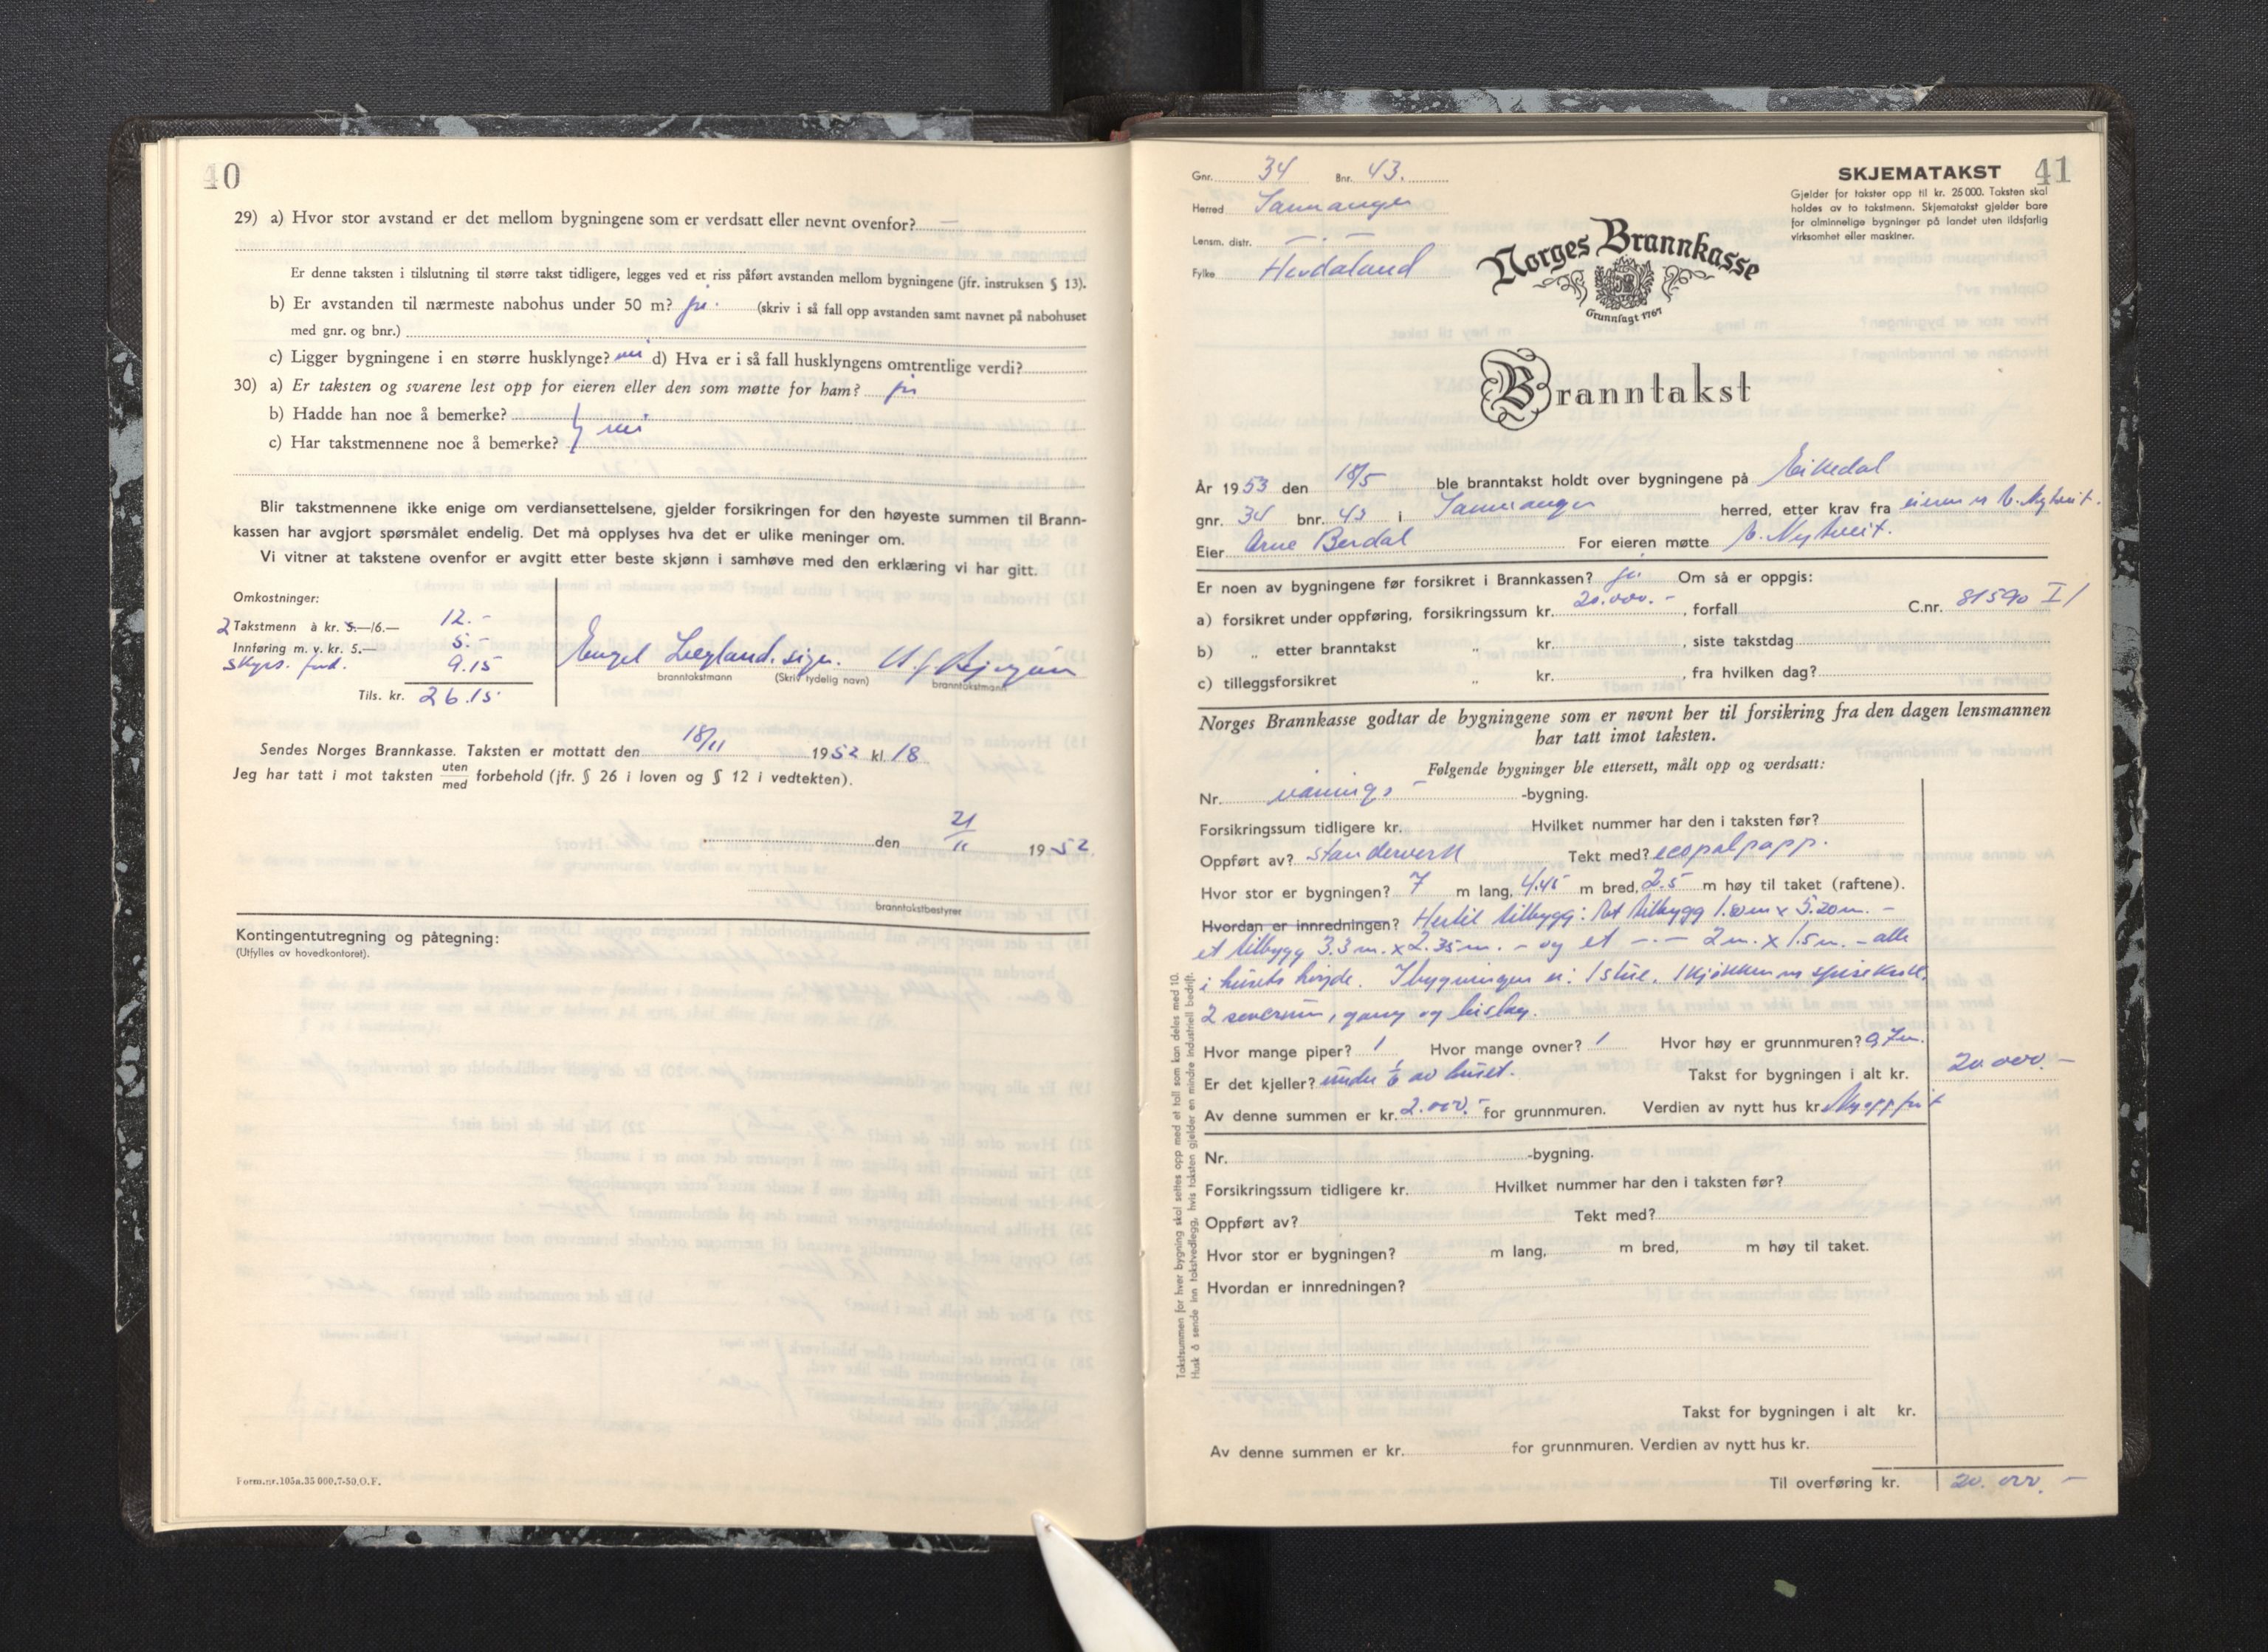 40
29) a) Hvor stor avstand er det mellom bygningene som er verdsatt eller nevnt ovenfor? —
Er denne taksten i tilslutning til større takst tidligere, legges ved et riss påført avstanden mellom bygningene (jfr. instruksen § 13).
b) Er avstanden til nærmeste nabohus under 50 m? ja. (skriv i så fall opp avstanden samt navnet på nabohuset
med gnr. og bnr.)
c) Ligger bygningene i en større husklynge? nei d) Hva er i så fall husklyngens omtrentlige verdi?
30) a) Er taksten og svarene lest opp for eieren eller den som møtte for ham? ja
b) Hadde han noe å bemerke?
c) Har takstmennene noe å bemerke? } nei
Blir takstmennene ikke enige om verdiansettelsene, gjelder forsikringen for den høyeste summen til Brann-
kassen har avgjort spørsmålet endelig. Det må opplyses hva det er ulike meninger om.
Vi vitner at takstene ovenfor er avgitt etter beste skjønn i samhøve med den erklæring vi har gitt.
Omkostninger:
2 Takstmenn à kr. 5.—/6.— 12.-
Innføring m. v. kr. 5.— 5.-
Skyss. 9.15
Tils. kr. 26.15
Engel Lægland. sign.
branntakstmann (Skriv tydelig navn) branntakstmann
Sendes Norges Brannkasse. Taksten er mottatt den 18/11 1952 kl. 18
Jeg har tatt i mot taksten uten/med forbehold (jfr. § 26 i loven og § 12 i vedtekten).
den 21/11 1952.
branntakstbestyrer
Kontingentutregning og påtegning:
(Utfylles av hovedkontoret).
Form.nr.105a.35 000.7-50.O.F.
Gnr. 34 Bnr. 43.
Herred Samnanger
Lensm. distr. — . —
Fylke Hordaland
SKJEMATAKST 41
Gjelder for takster opp til kr. 25 000. Taksten skal
holdes av to takstmenn. Skjematakst gjelder bare
for alminnelige bygninger på landet uten ildsfarlig
virksomhet eller maskiner.
Norges Brannkasse
Grunnlagt 1767
Branntakst
År 1953 den 18/5 ble branntakst holdt over bygningene på Eikedal
gnr. 34 bnr. 43 i Samnanger herred, etter krav fra eieren v. Nytveit.
Eier Arne Berdal For eieren møtte Nytveit.
Er noen av bygningene før forsikret i Brannkassen? ja Om så er oppgis:
a) forsikret under oppføring, forsikringssum kr. 20.000.- , forfall C.nr. 81590 I/
b) „ etter branntakst „ kr. , siste takstdag
c) tilleggsforsikret „ kr. , fra hvilken dag?
Norges Brannkasse godtar de bygningene som er nevnt her til forsikring fra den dagen lensmannen
har tatt imot taksten.
Følgende bygninger ble ettersett, målt opp og verdsatt:
Nr. vånings -bygning.
Forsikringssum tidligere kr. Hvilket nummer har den i taksten før?
Oppført av? standerverk Tekt med? ecopalpapp.
Hvor stor er bygningen? 7 m lang, 4.45 m bred, 2.5 m høy til taket (raftene).
Hvordan er innredningen? Hertil tilbygg: Et tilbygg 1.80m x 5.20m. -
et tilbygg 3.3 m. x 2.35m. - og et -.- 2m. x 1.5 m. - alle
i husets høyde. I bygningen er: 1 stue, 1 kjøkken m spisekrok,
2 soverum, gang og bislag.
Hvor mange piper? 1 Hvor mange ovner? 1 Hvor høy er grunnmuren? 0,7m.
Er det kjeller? under 1/6 av huset. Takst for bygningen i alt kr. 20.000.-
Av denne summen er kr. 2.000.- for grunnmuren. Verdien av nytt hus kr. Nyoppført
Nr. -bygning.
Forsikringssum tidligere kr. Hvilket nummer har den i taksten før?
Oppført av? Tekt med?
Hvor stor er bygningen? m lang, m bred, m høy til taket.
Hvordan er innredningen?
Takst for bygningen i alt kr.
Av denne summen er kr. for grunnmuren. Verdien av nytt hus kr.
Til overføring kr. 20.000.-
Takstsummen for hver bygning skal settes opp med et tall som kan deles med 10.
Husk å sende inn takstvedlegg, hvis taksten gjelder en mindre industriell bedrift.